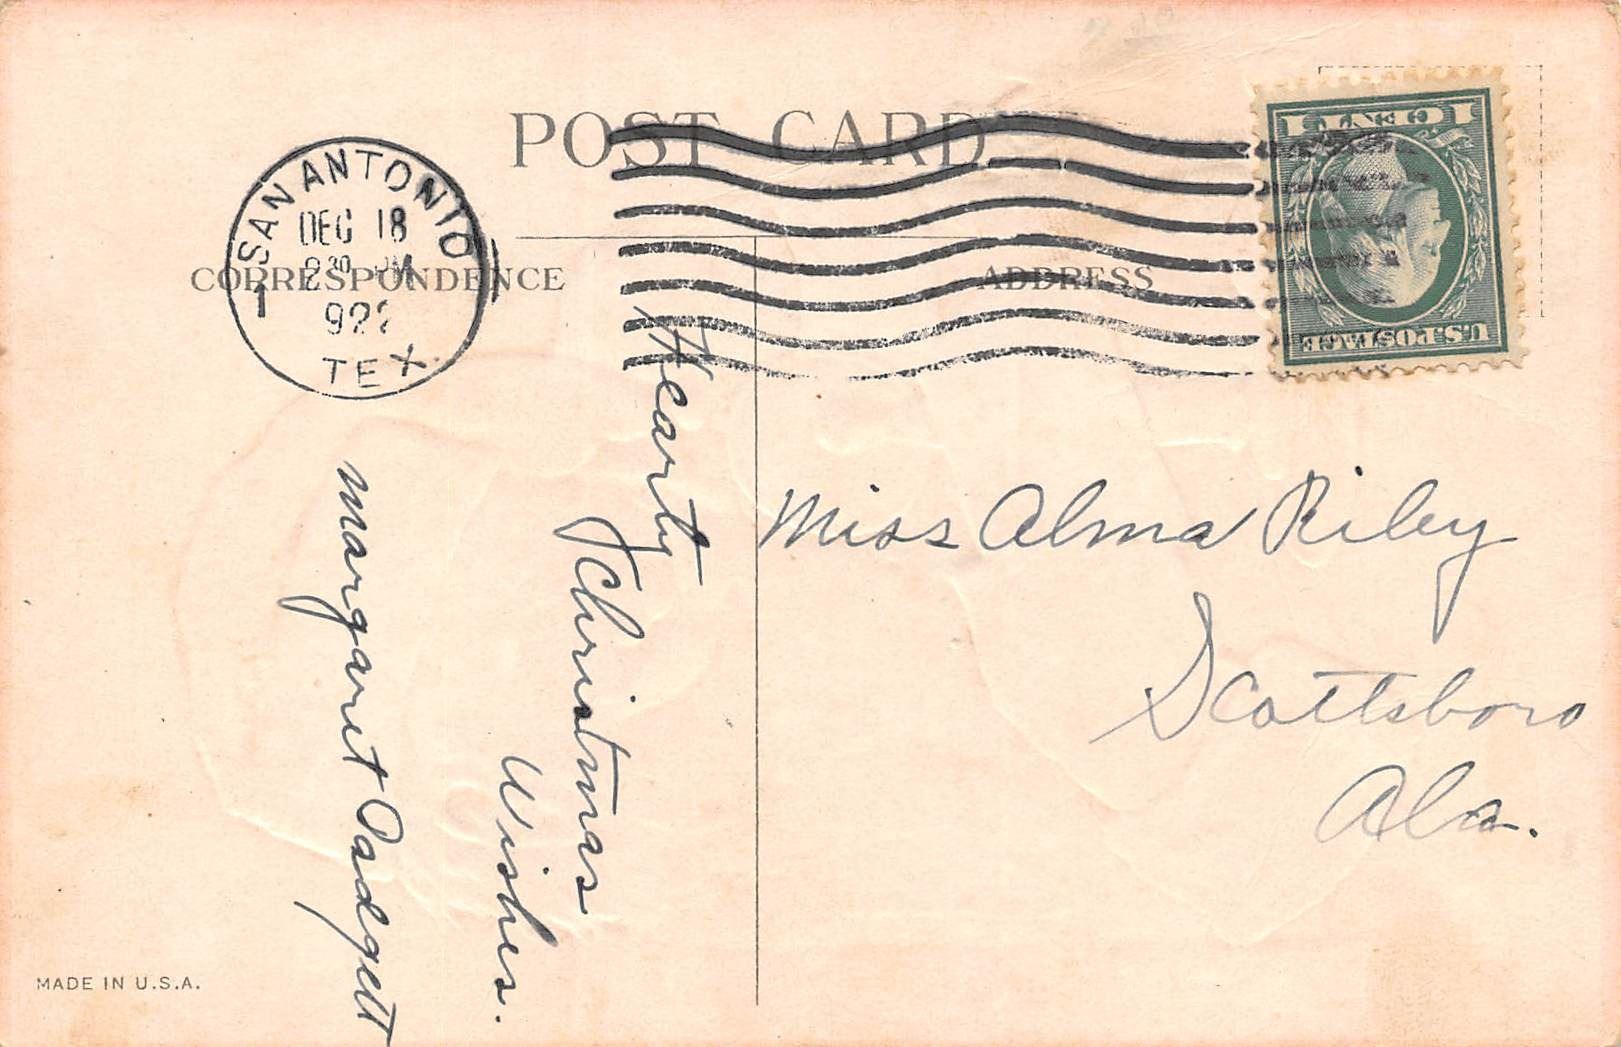 POST CARD
SAN ANTONIO
DEC 18
230 PM
1922
TEX.
CORRESPONDENCE
ADDRESS
1 CENT 1
U.S. POSTAGE
Hearty
Christmas
Wishes.
Margaret Padgett
Miss Alma Riley
Scottsboro
Ala.
MADE IN U.S.A.